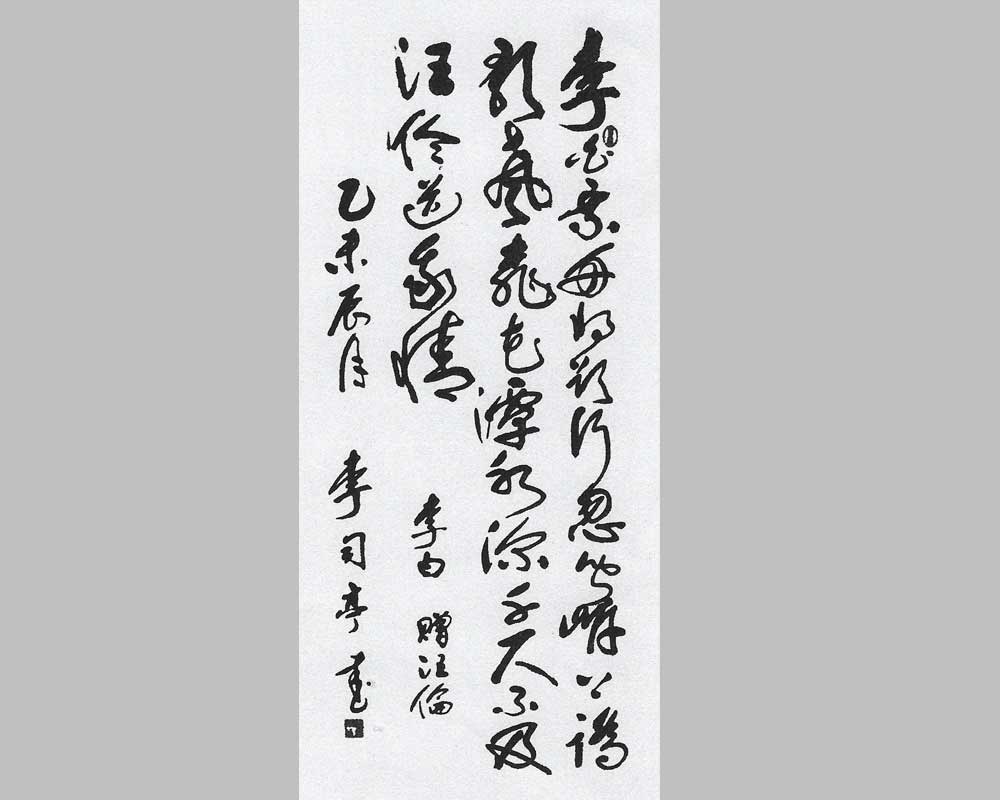 李白乘舟将欲行忽闻岸上踏
歌聲桃花潭水深千尺不及
汪倫送我情 李白 贈汪倫
乙未辰月 李司亭書